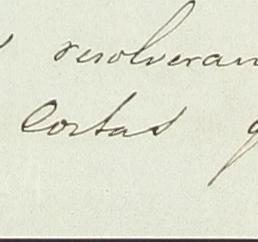 resolveran
Cortas